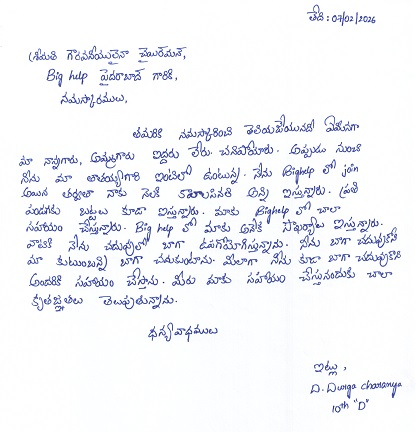 తేది : 07/02/2026
శ్రీమతి గౌరవనీయులైన చైర్మన్,
Big help హైదరాబాద్ గారికి,
నమస్కారములు,
తమరికి నమస్కరించి తెలియచేయునది ఏమనగా
మా నాన్నగారు, అమ్మగారు ఇద్దరు లేరు. చనిపోయారు. అప్పుడు నుంచి
నేను మా తాతయ్యగారి ఇంటిలో ఉంటున్న. నేను Bighelp లో join
అయిన తర్వాత నాకు నెలకి కావాలసినవి అన్ని ఇస్తున్నారు. ప్రతి
పండగకు బట్టలు కూడా ఇస్తున్నారు. మాకు Bighelp లో చాలా
సహాయం చేస్తున్నారు. Big help లో మాకు అనేక సౌకర్యాలు ఇస్తున్నారు.
వాటికి నేను చదువులో బాగా ఉపయోగిస్తున్నాను. నేను బాగా చదువుకొని
మా కుటుంబాన్ని బాగా చూసుకుంటాను. మీలాగా నేను కూడా బాగా చదువుకొని
అందరికి సహాయం చేస్తాను. మీరు మాకు సహాయం చేస్తునందుకు చాలా
కృతజ్ఞతలు తెలుపుతున్నాను.
ధన్యవాదములు
ఇట్లు,
D. Durga charanya
10th "D"